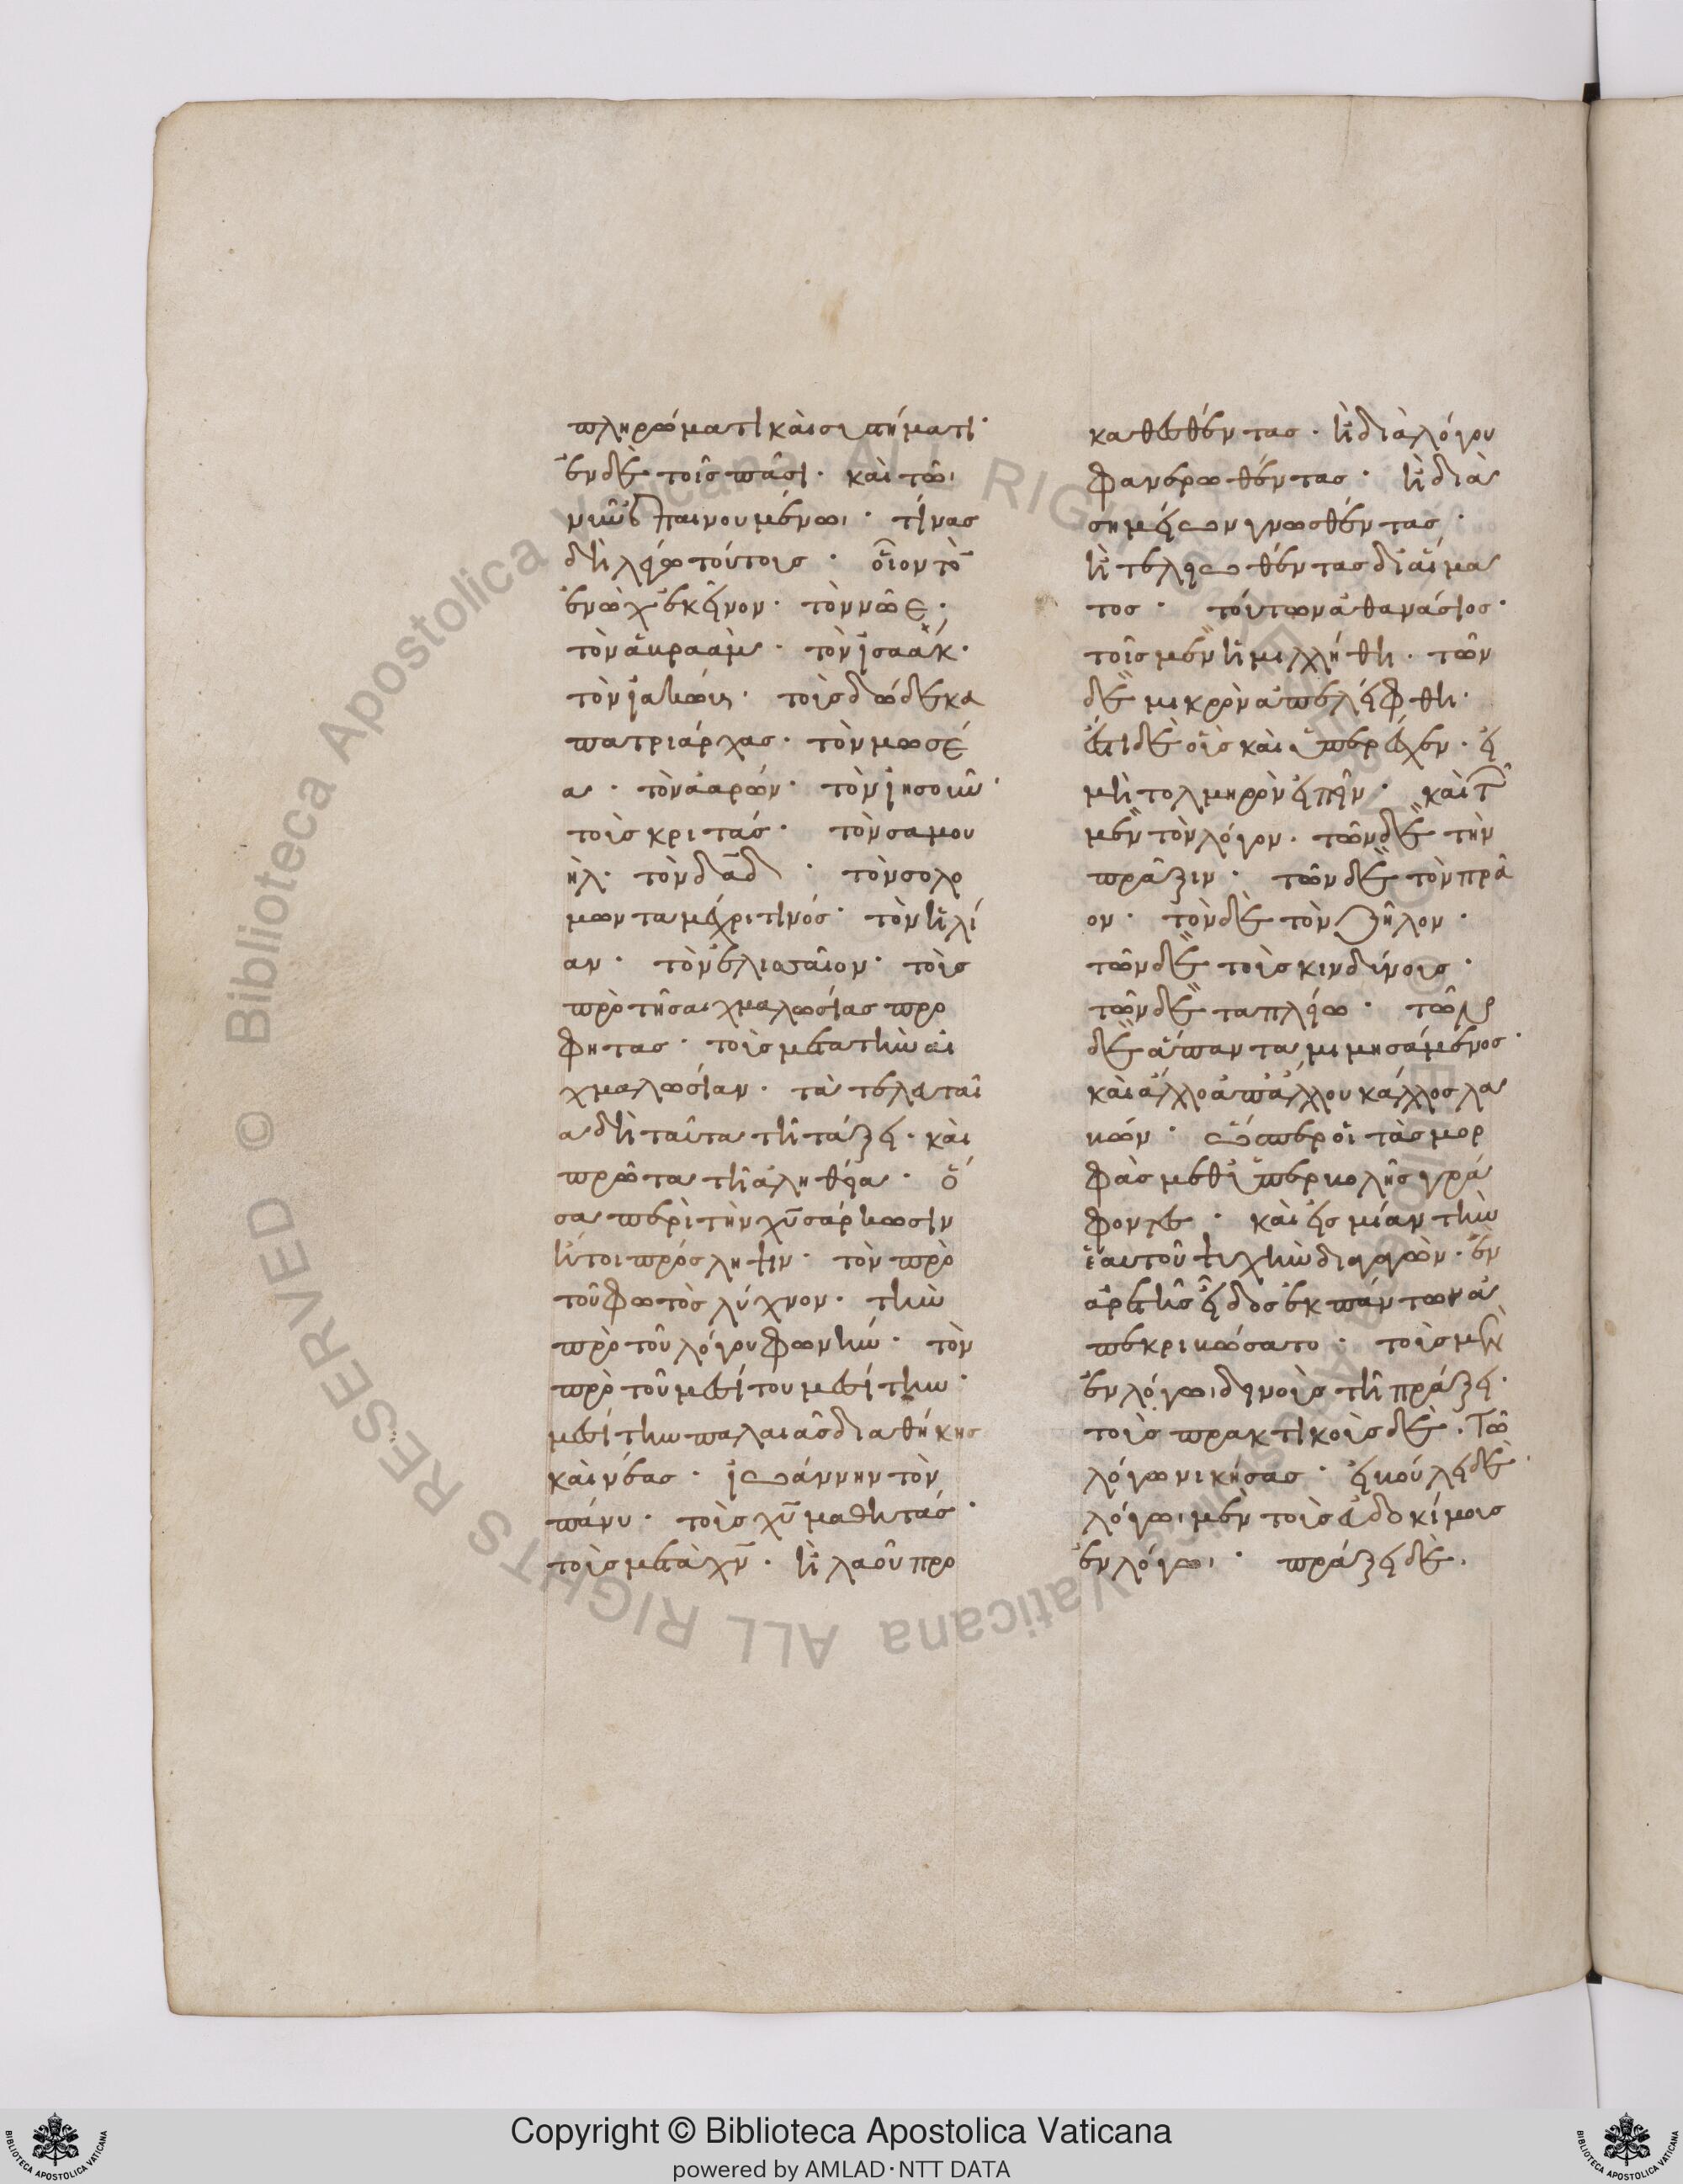 πληρώματι καὶ συστήματι·
ἐν δὲ τοῖς πᾶσι· καὶ τῶι
νῦν ἐπαινουμένωι· τίνας
δὴ λέγω τούτους· οἷον τὸ
ἐνὼχ ἐκεῖνον· τὸν νῶε·
τὸν ἀβραάμ· τὸν ἰσαάκ·
τὸν ἰακώβ· τοὺς δώδεκα
πατριάρχας· τὸν μωσέ
α· τὸν ἀαρών· τὸν ἰησοῦν·
τοὺς κριτάς· τὸν σαμου
ὴλ· τὸν δᾱδ· τὸν σολο
μῶντα μέχρι τινός· τὸν ἠλί
αν· τὸν ἐλισσαῖον· τοὺς
πρὸ τῆς αἰχμαλωσίας προ
φήτας· τοὺς μετὰ τὴν αἰ
χμαλωσίαν· τὰ τελευταῖ
α δὴ ταῦτα τῆ τάξει· καὶ
πρῶτα τῆ ἀληθεία· ὅ
σα περὶ τὴν χῡ σάρκωσιν
ἤτοι πρόσληψιν· τὸν πρὸ
τοῦ φωτὸς λύχνον· τὴν
πρὸ τοῦ λόγου φωνήν· τὸν
πρὸ τοῦ μεσίτου μεσίτην·
μεσίτην παλαιᾶς διαθήκης
καὶ νέας· ἰωάννην τὸν
πάνυ· τοὺς χῡ μαθητάς·
τοὺς μετὰ χν̄· ἢ λαοῦ προ
καθεσθέντας· ἢ διὰ λόγου
φανερωθέντας· ἢ διὰ
σημείων γνωσθέντας·
ἢ τελειωθέντας δι' αἵμα
τος· τούτων ἀθανάσιος·
τοῖς μὲν ἡμιλλήθη· τῶν
δὲ μικρὸν ἀπελείφθη·
ἔστι δὲ οὓς καὶ ὑπερέσχεν· εἰ
μὴ τολμηρὸν εἰπεῖν· καὶ τῶν
μὲν τὸν λόγον· τῶν δὲ τὴν
πρᾶξιν· τῶν δὲ τὸν πρᾶ
ον· τὸν δὲ τὸν ζῆλον·
τῶν δὲ τοὺς κινδύνους·
τῶν δὲ τὰ πλείω· τῶν
δὲ ἅπαντα μιμησάμενος·
καὶ ἄλλο ἀπ' ἄλλου κάλλος λα
βών· ὥσπερ οἱ τὰς μορ
φὰς μεθ' ὑπερβολῆς γρά
φοντες· καὶ εἰς μίαν τὴν
ἑαυτοῦ ψυχὴν διαγαγὼν· ἓν
ἀρετῆς εἶδος ἐκ πάντων ἀ
πεκριβώσατο· τοὺς μὲν
ἐν λόγωι δεινοὺς τῆ πράξει·
τοὺς πρακτικοὺς δὲ· τῶ
λόγω νικήσας· εἰ βούλει δὲ·
λόγωι μὲν τοὺς εὐδοκίμους
ἐν λόγωι· πράξει δὲ·
Copyright © Biblioteca Apostolica Vaticana
powered by AMLAD·NTT DATA